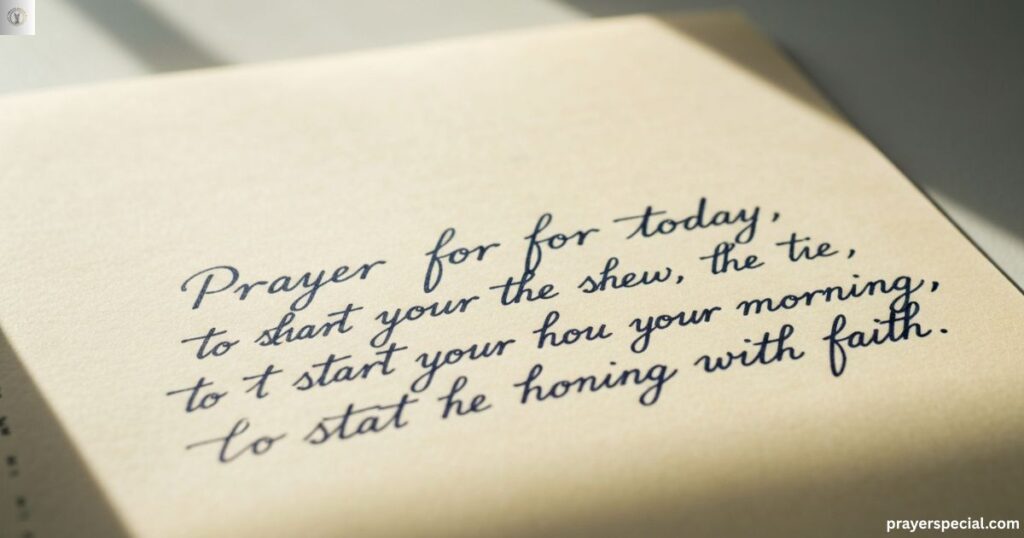 Prayer for for today,
to shart your the shew, the tie,
to t start your hou your morning,
to stat he honing with faith.
prayerspecial.com